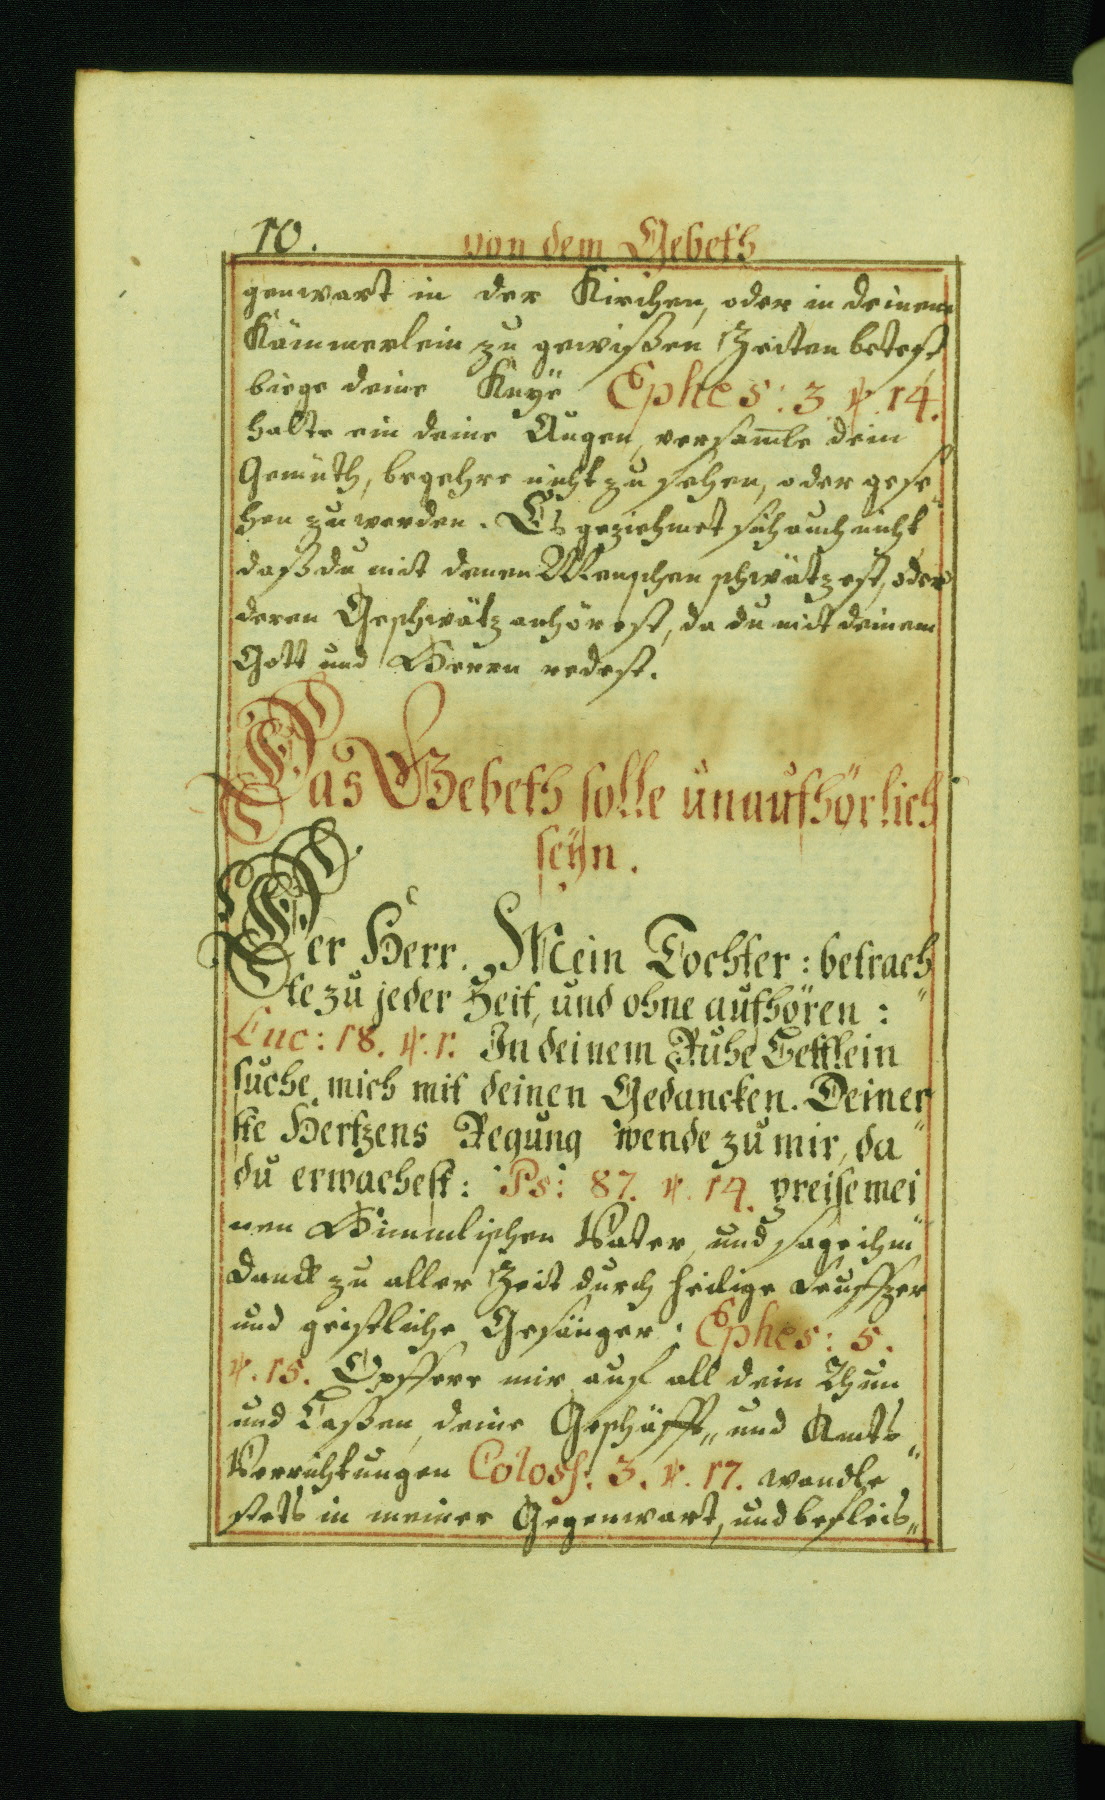 10. von dem Gebeth
genwart in der Kirchen, oder in deinem
Kämmerlein zu gewißen Zeiten betest
biege deine Knye Ephes: 3 v. 14.
halte ein deine Augen, versam̄le dein
Gemüth, begehre nicht zu sehen, oder gese„
hen zu werden. Es geziehmet sich auch nicht
daß du mit denen Menschen schwätzest, oder
deren Geschwätz anhörest, da du mit deinem
Gott und Herrn redest.
Das Gebeth solle unaufhörlich
seÿn.
Der Herr. Mein Tochter: betrach„
te zu jeder Zeit, und ohne aufhören:
Luc: 18. v. 1. In deinem Ruhe Bettlein
suche mich mit deinen Gedancken. Dein er„
ste Hertzens Regung wende zu mir, da
du erwachest: Ps: 87. v. 14. preise mei„
nen Himmlischen Vater, und sage ihm
Danck zu aller Zeit durch heilige Seuffzer
und geistliche Gesänger: Ephes: 5.
v. 15. Opffere mir auf all dein Thun
und Laßen, deine Geschäfft„ und Amts„
Verrichtungen Coloss: 3. v. 17. wandle
stets in meiner Gegenwart, und befleis„